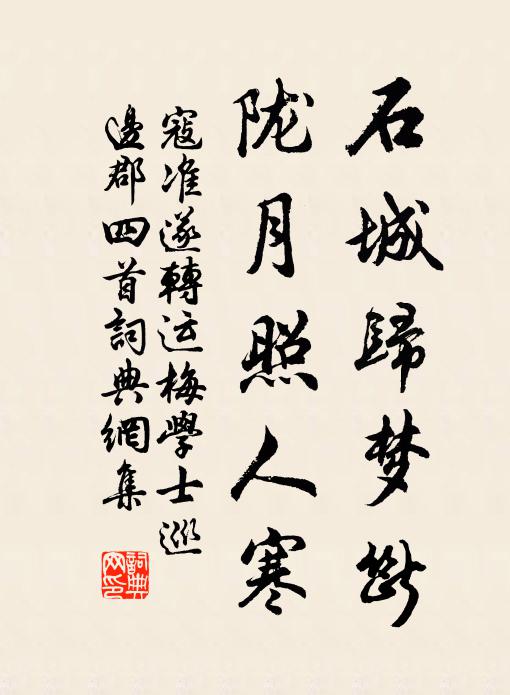 石城歸梦斷
陇月照人寒
寇准送轉运梅學士巡
邊郡四首詞典網集
詞典
网印